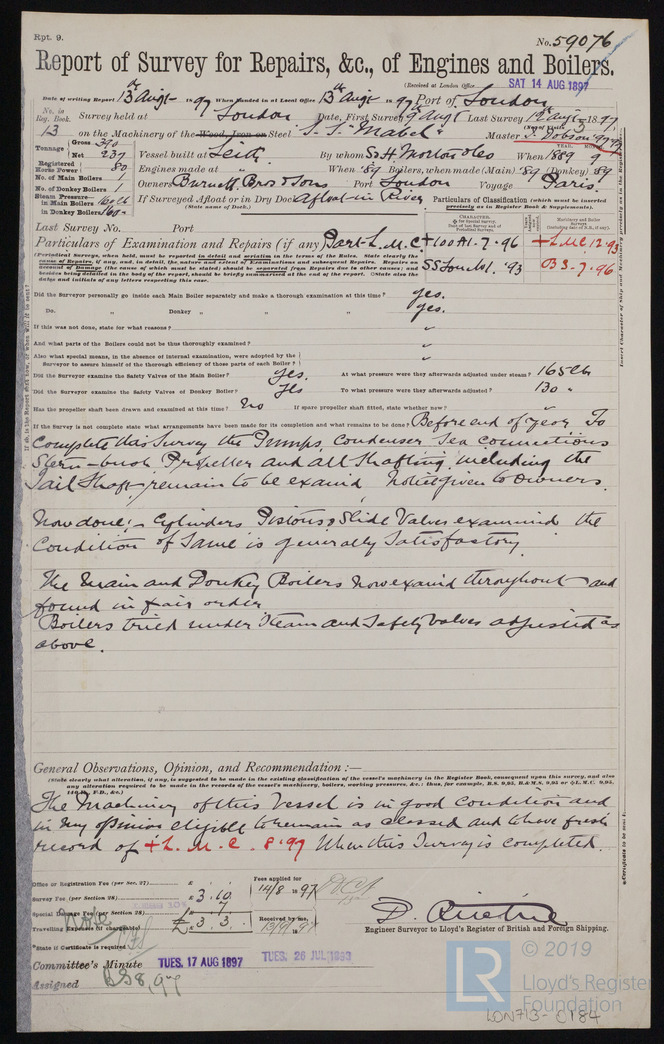 Rpt. 9.
No. 59076
Report of Survey for Repairs, &c., of Engines and Boilers.
(Received at London Office SAT 14 AUG 1897
Date of writing Report 13th Augt 1897 When handed in at Local Office 13th Augt 1897 Port of London
No. in Reg. Book. Survey held at London Date, First Survey 9 Augt Last Survey 12 Augt 1897
13 on the Machinery of the Wood, Iron or Steel S.S. "Mabel" Master J. Dobson
Tonnage Gross 390 Net 237 Vessel built at Leith By whom S. & H. Morton & Co When 1889 9
Registered Horse Power 80 Engines made at " When '89 Boilers, when made (Main) '89 (Donkey) '89
No. of Main Boilers 1
No. of Donkey Boilers 1 Owners Burnett Bros & Sons Port London Voyage Paris.
Steam Pressure in Main Boilers 160 lb
in Donkey Boilers If Surveyed Afloat or in Dry Dock Afloat in River
(State name of Dock.)
Particulars of Classification (which must be inserted precisely as in Register Book & Supplements).
Last Survey No. Port
Particulars of Examination and Repairs (if any) Part L.M.C. +100A1-7-96 +LMC 12.93
SS Lon No1-'93 BS-7-96
Did the Surveyor personally go inside each Main Boiler separately and make a thorough examination at this time? yes.
Do. " Donkey " " " yes.
If this was not done, state for what reasons? "
And what parts of the Boilers could not be thus thoroughly examined? "
Also what special means, in the absence of internal examination, were adopted by the Surveyor to assure himself of the thorough efficiency of those parts of each Boiler? "
Did the Surveyor examine the Safety Valves of the Main Boiler? Yes. At what pressure were they afterwards adjusted under steam? 165 lb
Did the Surveyor examine the Safety Valves of Donkey Boiler? Yes To what pressure were they afterwards adjusted? 130 "
Has the propeller shaft been drawn and examined at this time? No If spare propeller shaft fitted, state whether new? "
If the Survey is not complete state what arrangements have been made for its completion and what remains to be done? Before end of year To
complete this Survey the Pumps, Condenser Sea Connections
Stern-bush Propeller and all Shafting including the
Tail Shaft remain to be examd notice given to Owners.
Now done:- Cylinders Pistons & Slide Valves examined the
Condition of same is generally Satisfactory
The Main and Donkey Boilers now examd throughout and
found in fair order
Boilers tried under Steam and Safety Valves adjusted as
above.
General Observations, Opinion, and Recommendation:—
(State clearly what alteration, if any, is suggested to be made in the existing classification of the vessel's machinery in the Register Book, consequent upon this survey, and also
any alteration required to be made in the records of the vessel's machinery, boilers, working pressures, &c.: thus, for example, B.S. 9,95, B.&M.S. 9,95 or L.M.C. 9,95,
140 lb., F.D., &c.)
The Machinery of this Vessel is in good Condition and
in my opinion eligible to remain as classed and to have fresh
record of +L.M.C. 8.97 When this Survey is completed.
Office or Registration Fee (per Sec. 27) £ : :
Survey Fee (per Section 28) £ 3.10.
Special Damage Fee (per Section 28) £ 7
Travelling Expenses (if chargeable) £ 3.3.
Fees applied for 14/8 1897
Received by me,
D. Ritchie
Engineer Surveyor to Lloyd's Register of British and Foreign Shipping.
State if Certificate is required
Committee's Minute TUES. 17 AUG 1897
Assigned BS 8,97
© 2019
LR
Lloyd's Register
Foundation
LON713-0184